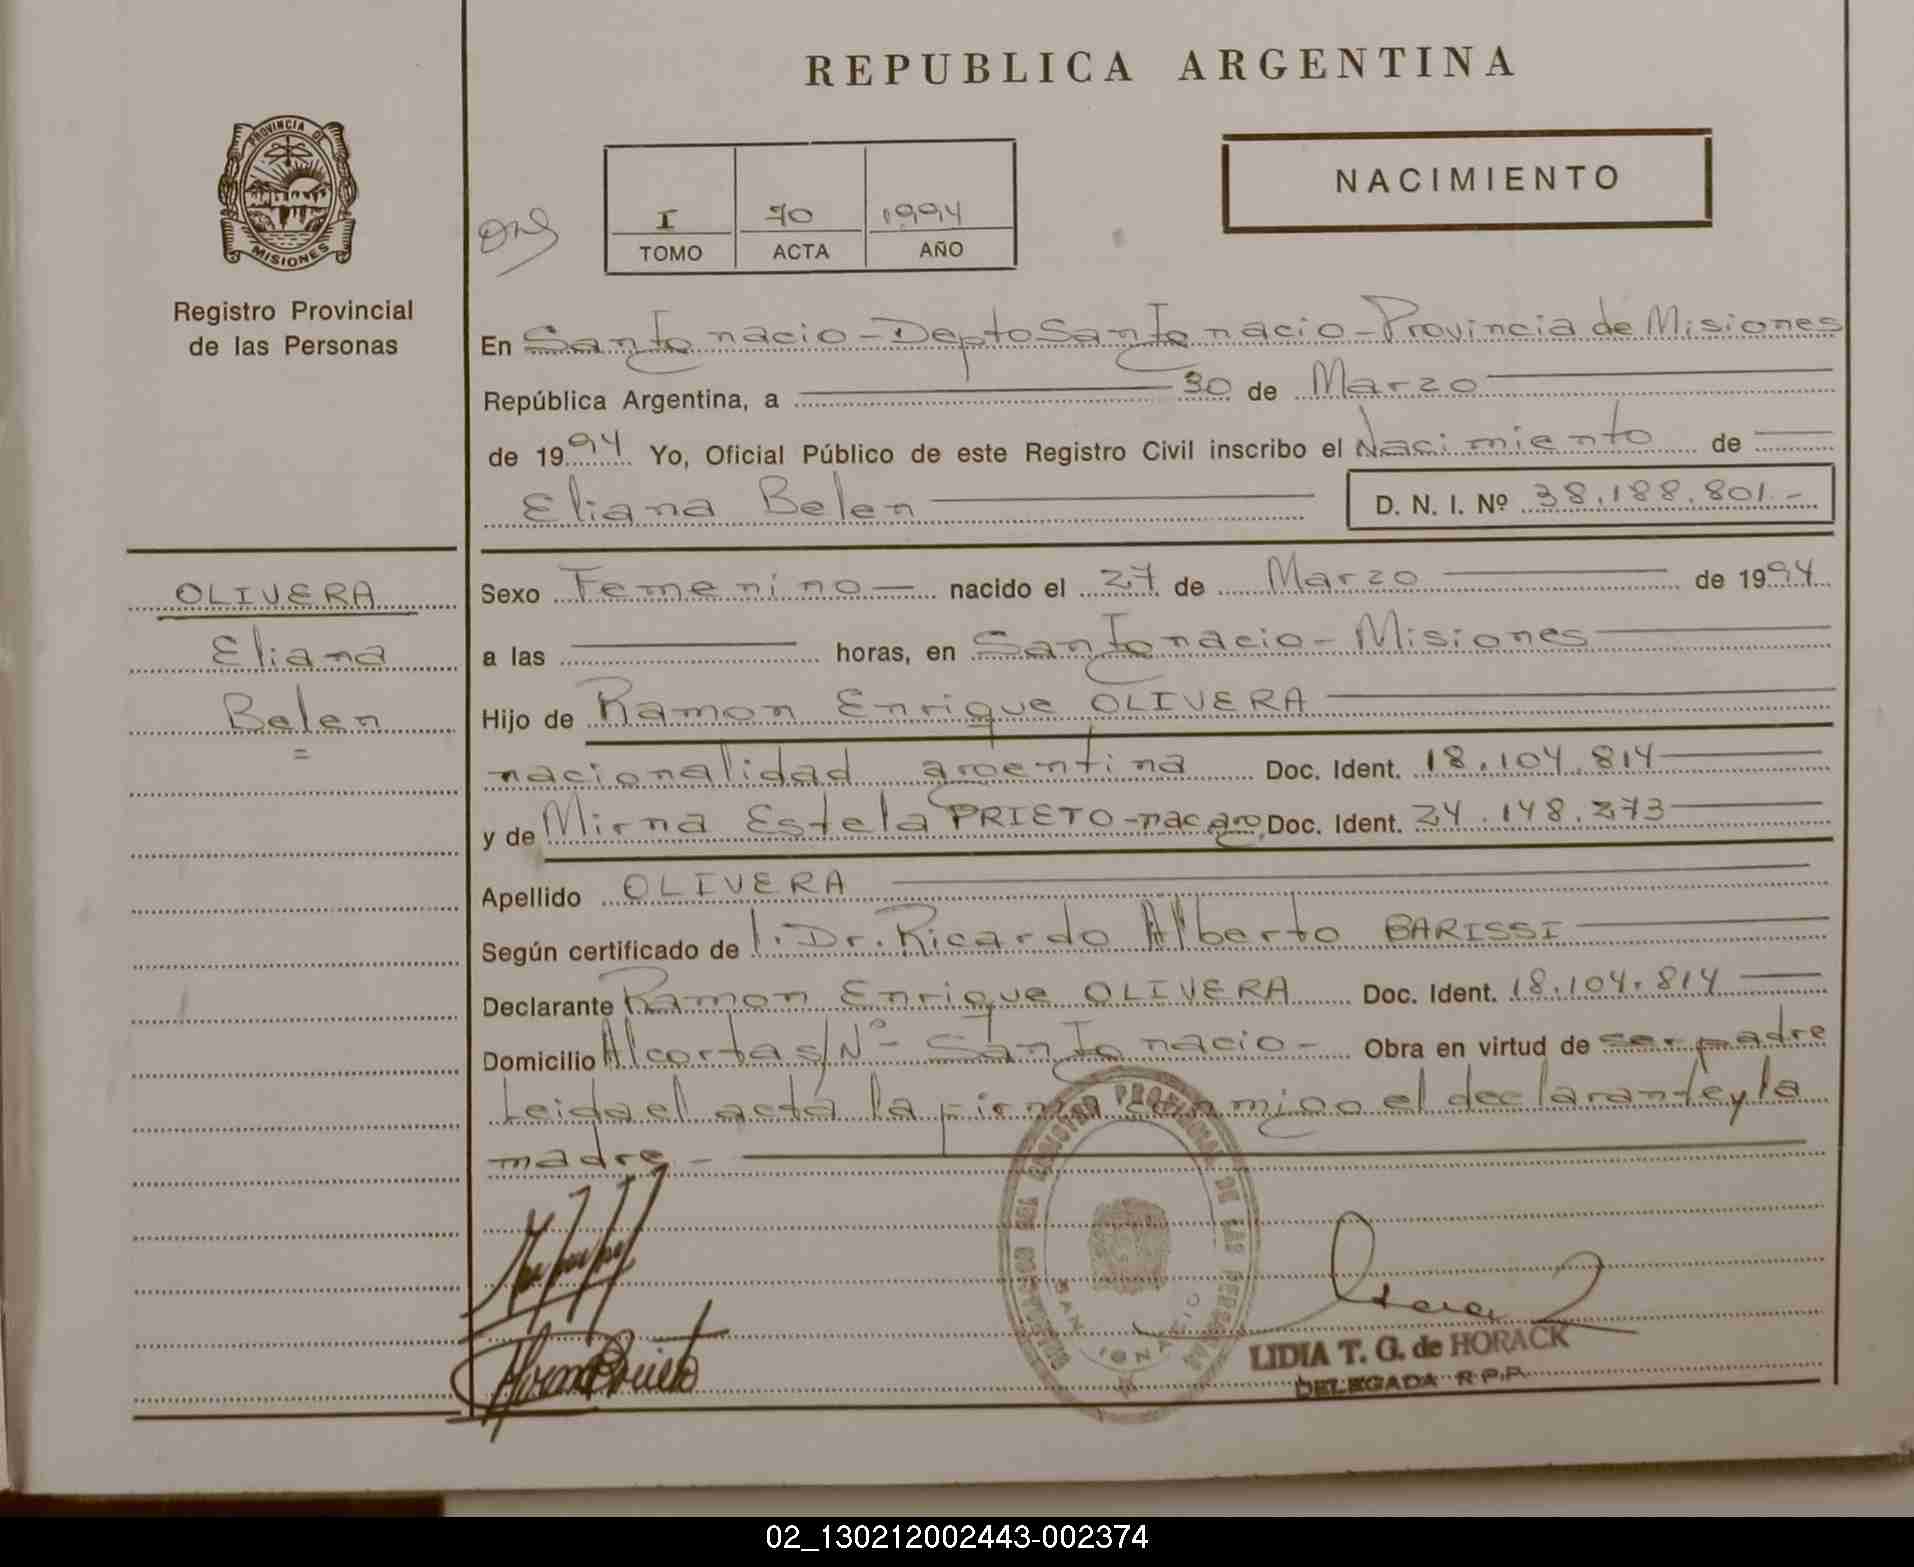 REPUBLICA ARGENTINA
PROVINCIA DE
MISIONES
Registro Provincial
de las Personas
NACIMIENTO
I 70 1994
TOMO ACTA AÑO
En San Ignacio - Depto San Ignacio - Provincia de Misiones
República Argentina, a 30 de Marzo
de 1994 Yo, Oficial Público de este Registro Civil inscribo el Nacimiento de
Eliana Belen D. N. I. Nº 38.188.801.-
OLIVERA
Eliana
Belen
=
Sexo Femenino nacido el 27 de Marzo de 1994
a las horas, en San Ignacio - Misiones
Hijo de Ramon Enrique OLIVERA
nacionalidad argentina Doc. Ident. 18.104.814
y de Mirna Estela PRIETO - nac arg. Doc. Ident. 24.148.273
Apellido OLIVERA
Según certificado de l. Dr. Ricardo Alberto BARISSI
Declarante Ramon Enrique OLIVERA Doc. Ident. 18.104.814
Domicilio Alcorta s/Nº - San Ignacio - Obra en virtud de ser padre
Leida el acta la firma conmigo el declarante y la
madre -
REGISTRO PROVINCIAL DE LAS PERSONAS
SAN IGNACIO
LIDIA T. G. de HORACK
DELEGADA R.P.P.
02_130212002443-002374